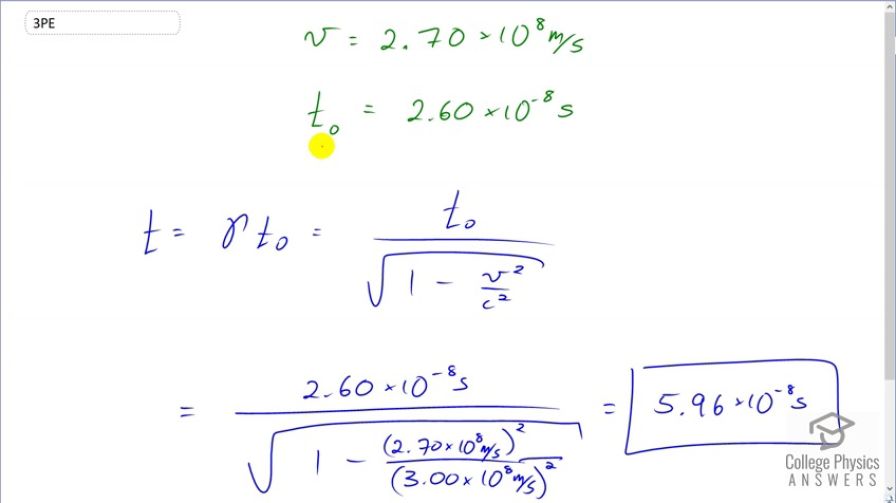 3PE
v = 2.70 × 10⁸ m/s
t₀ = 2.60 × 10⁻⁸ s
t = γ t₀ = t₀ / √(1 - v²/c²)
= 2.60 × 10⁻⁸ s / √(1 - (2.70 × 10⁸ m/s)² / (3.00 × 10⁸ m/s)²) = 5.96 × 10⁻⁸ s
College Physics
ANSWERS